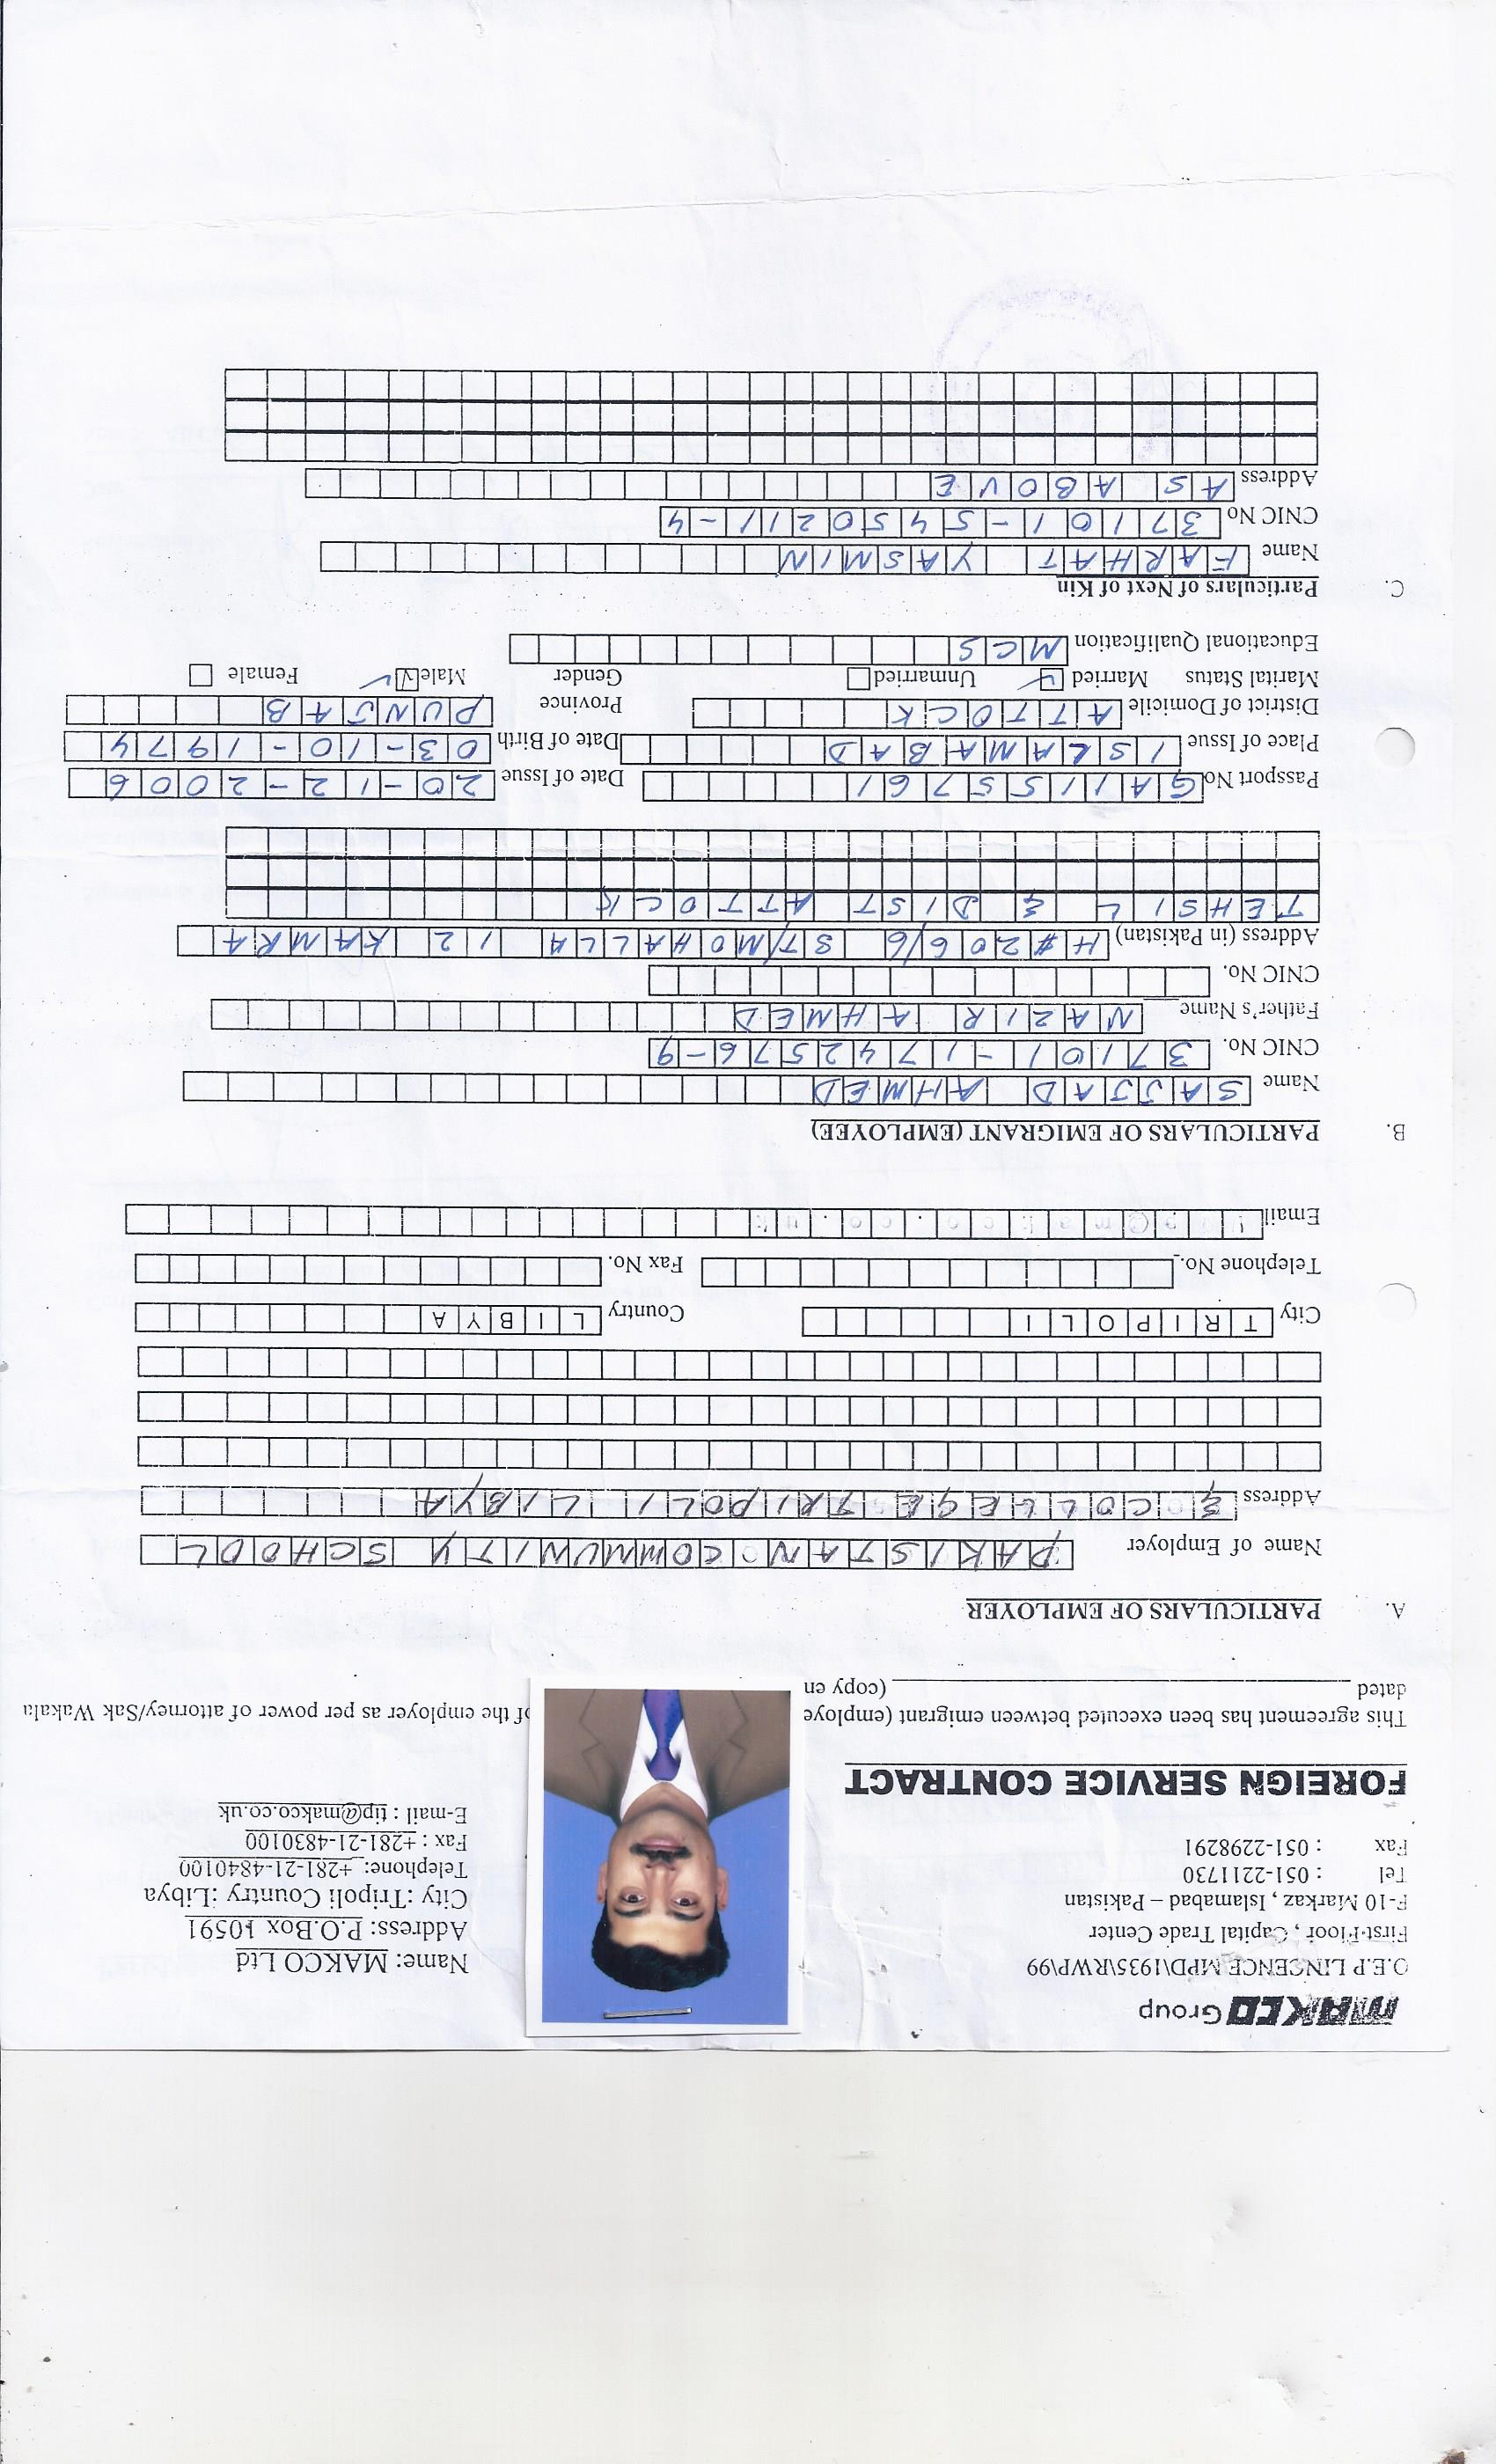 MAKCO Group
O.E.P LINCENCE MPD\1935\RWP\99
First-Floor , Capital Trade Center
F-10 Markaz , Islamabad – Pakistan
Tel : 051-2211730
Fax : 051-2298291
Name: MAKCO Ltd
Address: P.O.Box 10591
City :Tripoli Country :Libya
Telephone: +281-21-4840100
Fax : +281-21-4830100
E-mail : tip@makco.co.uk
FOREIGN SERVICE CONTRACT
This agreement has been executed between emigrant (employe of the employer as per power of attorney/Sak Wakala
dated (copy en
A. PARTICULARS OF EMPLOYER
Name of Employer PAKISTAN COMMUNITY SCHOOL
Address & COLLEGE TRIPOLI LIBYA
City TRIPOLI Country LIBYA
Telephone No. Fax No.
Email @makco.co.uk
B. PARTICULARS OF EMIGRANT (EMPLOYEE)
Name SAJJAD AHMED
CNIC No. 37101-1742576-9
Father's Name NAZIR AHMED
CNIC No.
Address (in Pakistan) H#206/6 ST/MOHALLA 12 KAMRA
TEHSIL & DIST ATTOCK
Passport No GA1155761 Date of Issue 20-12-2006
Place of Issue ISLAMABAD Date of Birth 03-10-1974
District of Domicile ATTOCK Province PUNJAB
Marital Status Married Unmarried Gender Male Female
Educational Qualification MCS
C. Particulars of Next of Kin
Name FARHAT YASMIN
CNIC No 37101-5450211-4
Address AS ABOVE